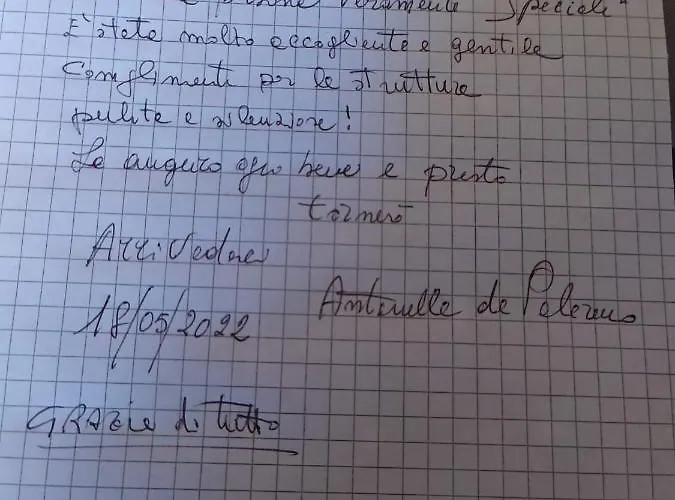 persone veramente speciali"
E' stato molto accogliente e gentile
Complimenti per la struttura
pulita e silenziosa!
Le auguro ogni bene e presto
tornerò
Arrivederci
18/05/2022 Antonella da Palermo
GRAZIE di tutto